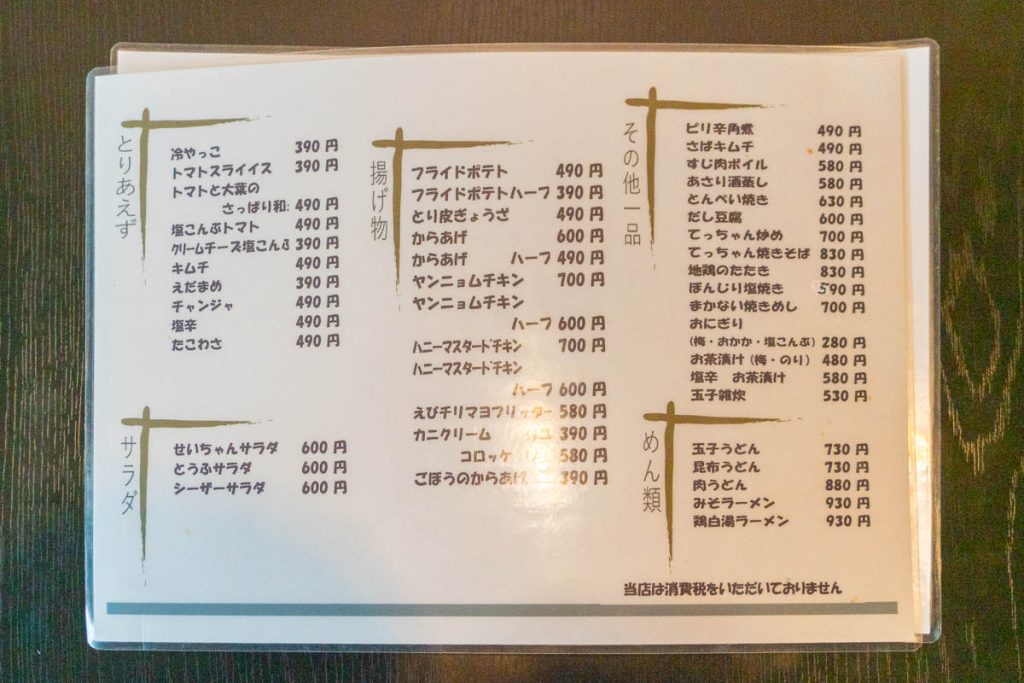 とりあえず
冷やっこ 390 円
トマトスライイス 390 円
トマトと大葉の
さっぱり和 490 円
塩こんぶトマト 490 円
クリームチーズ塩こんぶ 390 円
キムチ 490 円
えだまめ 390 円
チャンジャ 490 円
塩辛 490 円
たこわさ 490 円
サラダ
せいちゃんサラダ 600 円
とうふサラダ 600 円
シーザーサラダ 600 円
揚げ物
フライドポテト 490 円
フライドポテトハーフ 390 円
とり皮ぎょうざ 490 円
からあげ 600 円
からあげ ハーフ 490 円
ヤンニョムチキン 700 円
ヤンニョムチキン
ハーフ 600 円
ハニーマスタードチキン 700 円
ハニーマスタードチキン
ハーフ 600 円
えびチリマヨフリッター 580 円
カニクリーム 390 円
コロッケ 580 円
ごぼうのからあげ 390 円
その他一品
ピリ辛角煮 490 円
さばキムチ 490 円
すじ肉ボイル 580 円
あさり酒蒸し 580 円
とんぺい焼き 630 円
だし豆腐 600 円
てっちゃん炒め 700 円
てっちゃん焼きそば 830 円
地鶏のたたき 830 円
ぼんじり塩焼き 590 円
まかない焼きめし 700 円
おにぎり
(梅・おかか・塩こんぶ) 280 円
お茶漬け (梅・のり) 480 円
塩辛 お茶漬け 580 円
玉子雑炊 530 円
めん類
玉子うどん 730 円
昆布うどん 730 円
肉うどん 880 円
みそラーメン 930 円
鶏白湯ラーメン 930 円
当店は消費税をいただいておりません